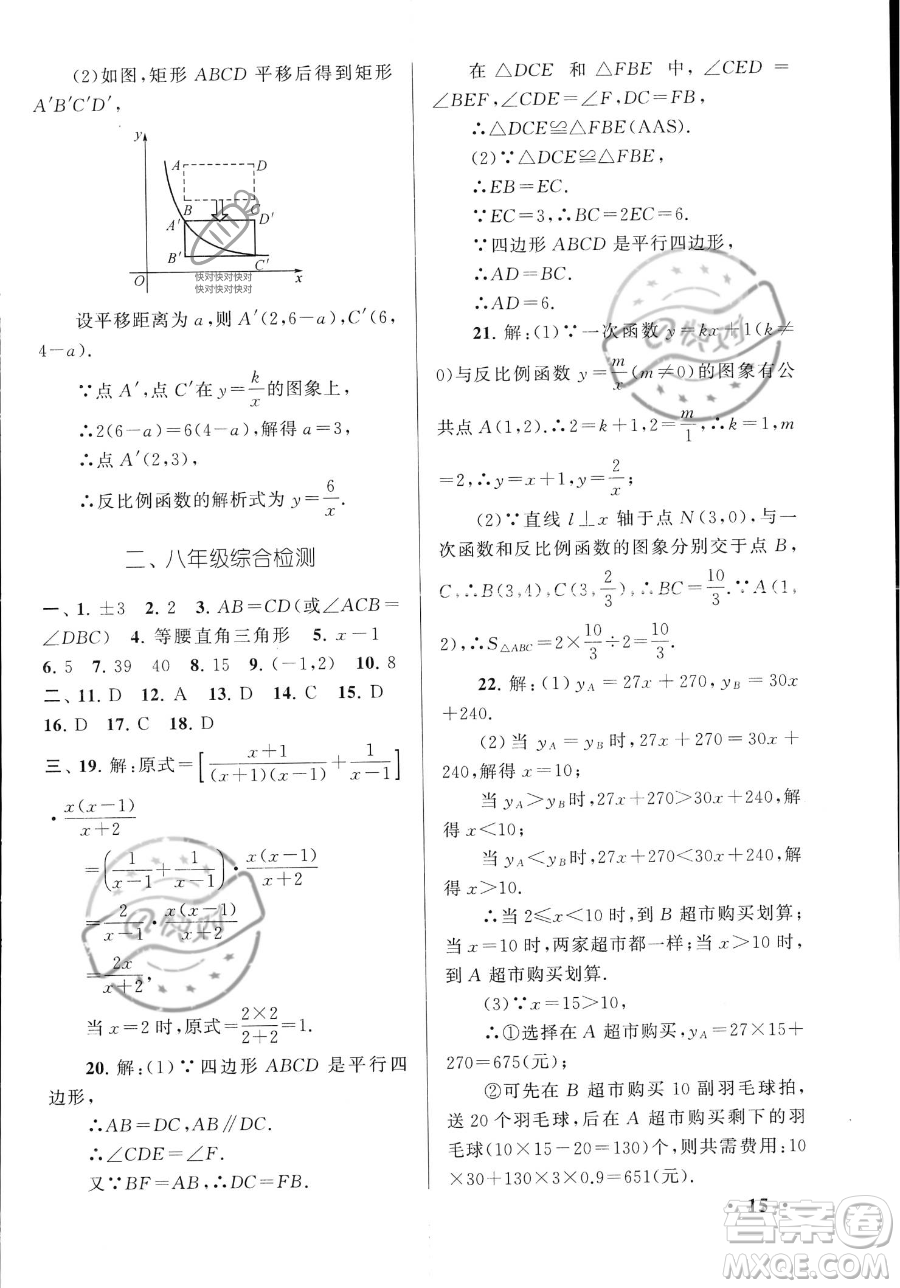 (2)如图,矩形 ABCD 平移后得到矩形
A′B′C′D′,
y
A D
B C
A′ D′
B′ C′
O x
快对快对快对
快对快对快对
设平移距离为 a,则 A′(2,6－a),C′(6,
4－a).
∵点 A′,点 C′在 y=k/x的图象上,
∴2(6－a)=6(4－a),解得 a=3,
∴点 A′(2,3),
∴反比例函数的解析式为 y=6/x.
二、八年级综合检测
一、1. ±3 2. 2 3. AB=CD(或∠ACB=
∠DBC) 4. 等腰直角三角形 5. x－1
6. 5 7. 39 40 8. 15 9. (－1,2) 10. 8
二、11. D 12. A 13. D 14. C 15. D
16. D 17. C 18. D
三、19. 解:原式=[(x+1)/((x+1)(x－1))+1/(x－1)]
·x(x－1)/(x+2)
=(1/(x－1)+1/(x－1))·x(x－1)/(x+2)
=2/(x－1)·x(x－1)/(x+2)
=2x/(x+2),
当 x=2 时,原式=(2×2)/(2+2)=1.
20. 解:(1)∵四边形 ABCD 是平行四
边形,
∴AB=DC,AB∥DC,
∴∠CDE=∠F.
又∵BF=AB,∴DC=FB.
在 △DCE 和 △FBE 中,∠CED =
∠BEF,∠CDE=∠F,DC=FB,
∴△DCE≌△FBE(AAS).
(2)∵△DCE≌△FBE,
∴EB=EC.
∵EC=3,∴BC=2EC=6.
∵四边形 ABCD 是平行四边形,
∴AD=BC.
∴AD=6.
21. 解:(1)∵一次函数 y=kx+1(k≠
0)与反比例函数 y=m/x(m≠0)的图象有公
共点 A(1,2).∴2=k+1,2=m/1,∴k=1,m
=2,∴y=x+1,y=2/x;
(2)∵直线 l⊥x 轴于点 N(3,0),与一
次函数和反比例函数的图象分别交于点 B,
C,∴B(3,4),C(3,2/3),∴BC=10/3.∵A(1,
2),∴S△ABC=2×10/3÷2=10/3.
22. 解:(1)yA=27x+270,yB=30x
+240.
(2)当 yA=yB时,27x+270=30x+
240,解得 x=10;
当 yA>yB时,27x+270>30x+240,解
得 x<10;
当 yA<yB时,27x+270<30x+240,解
得 x>10.
∴当 2≤x<10 时,到 B 超市购买划算;
当 x=10 时,两家超市都一样;当 x>10 时,
到 A 超市购买划算.
(3)∵x=15>10,
∴①选择在 A 超市购买,yA=27×15+
270=675(元);
②可先在 B 超市购买 10 副羽毛球拍,
送 20 个羽毛球,后在 A 超市购买剩下的羽
毛球(10×15－20=130)个,则共需费用:10
×30+130×3×0.9=651(元).
· 15 ·
答案卷
MXQE.COM